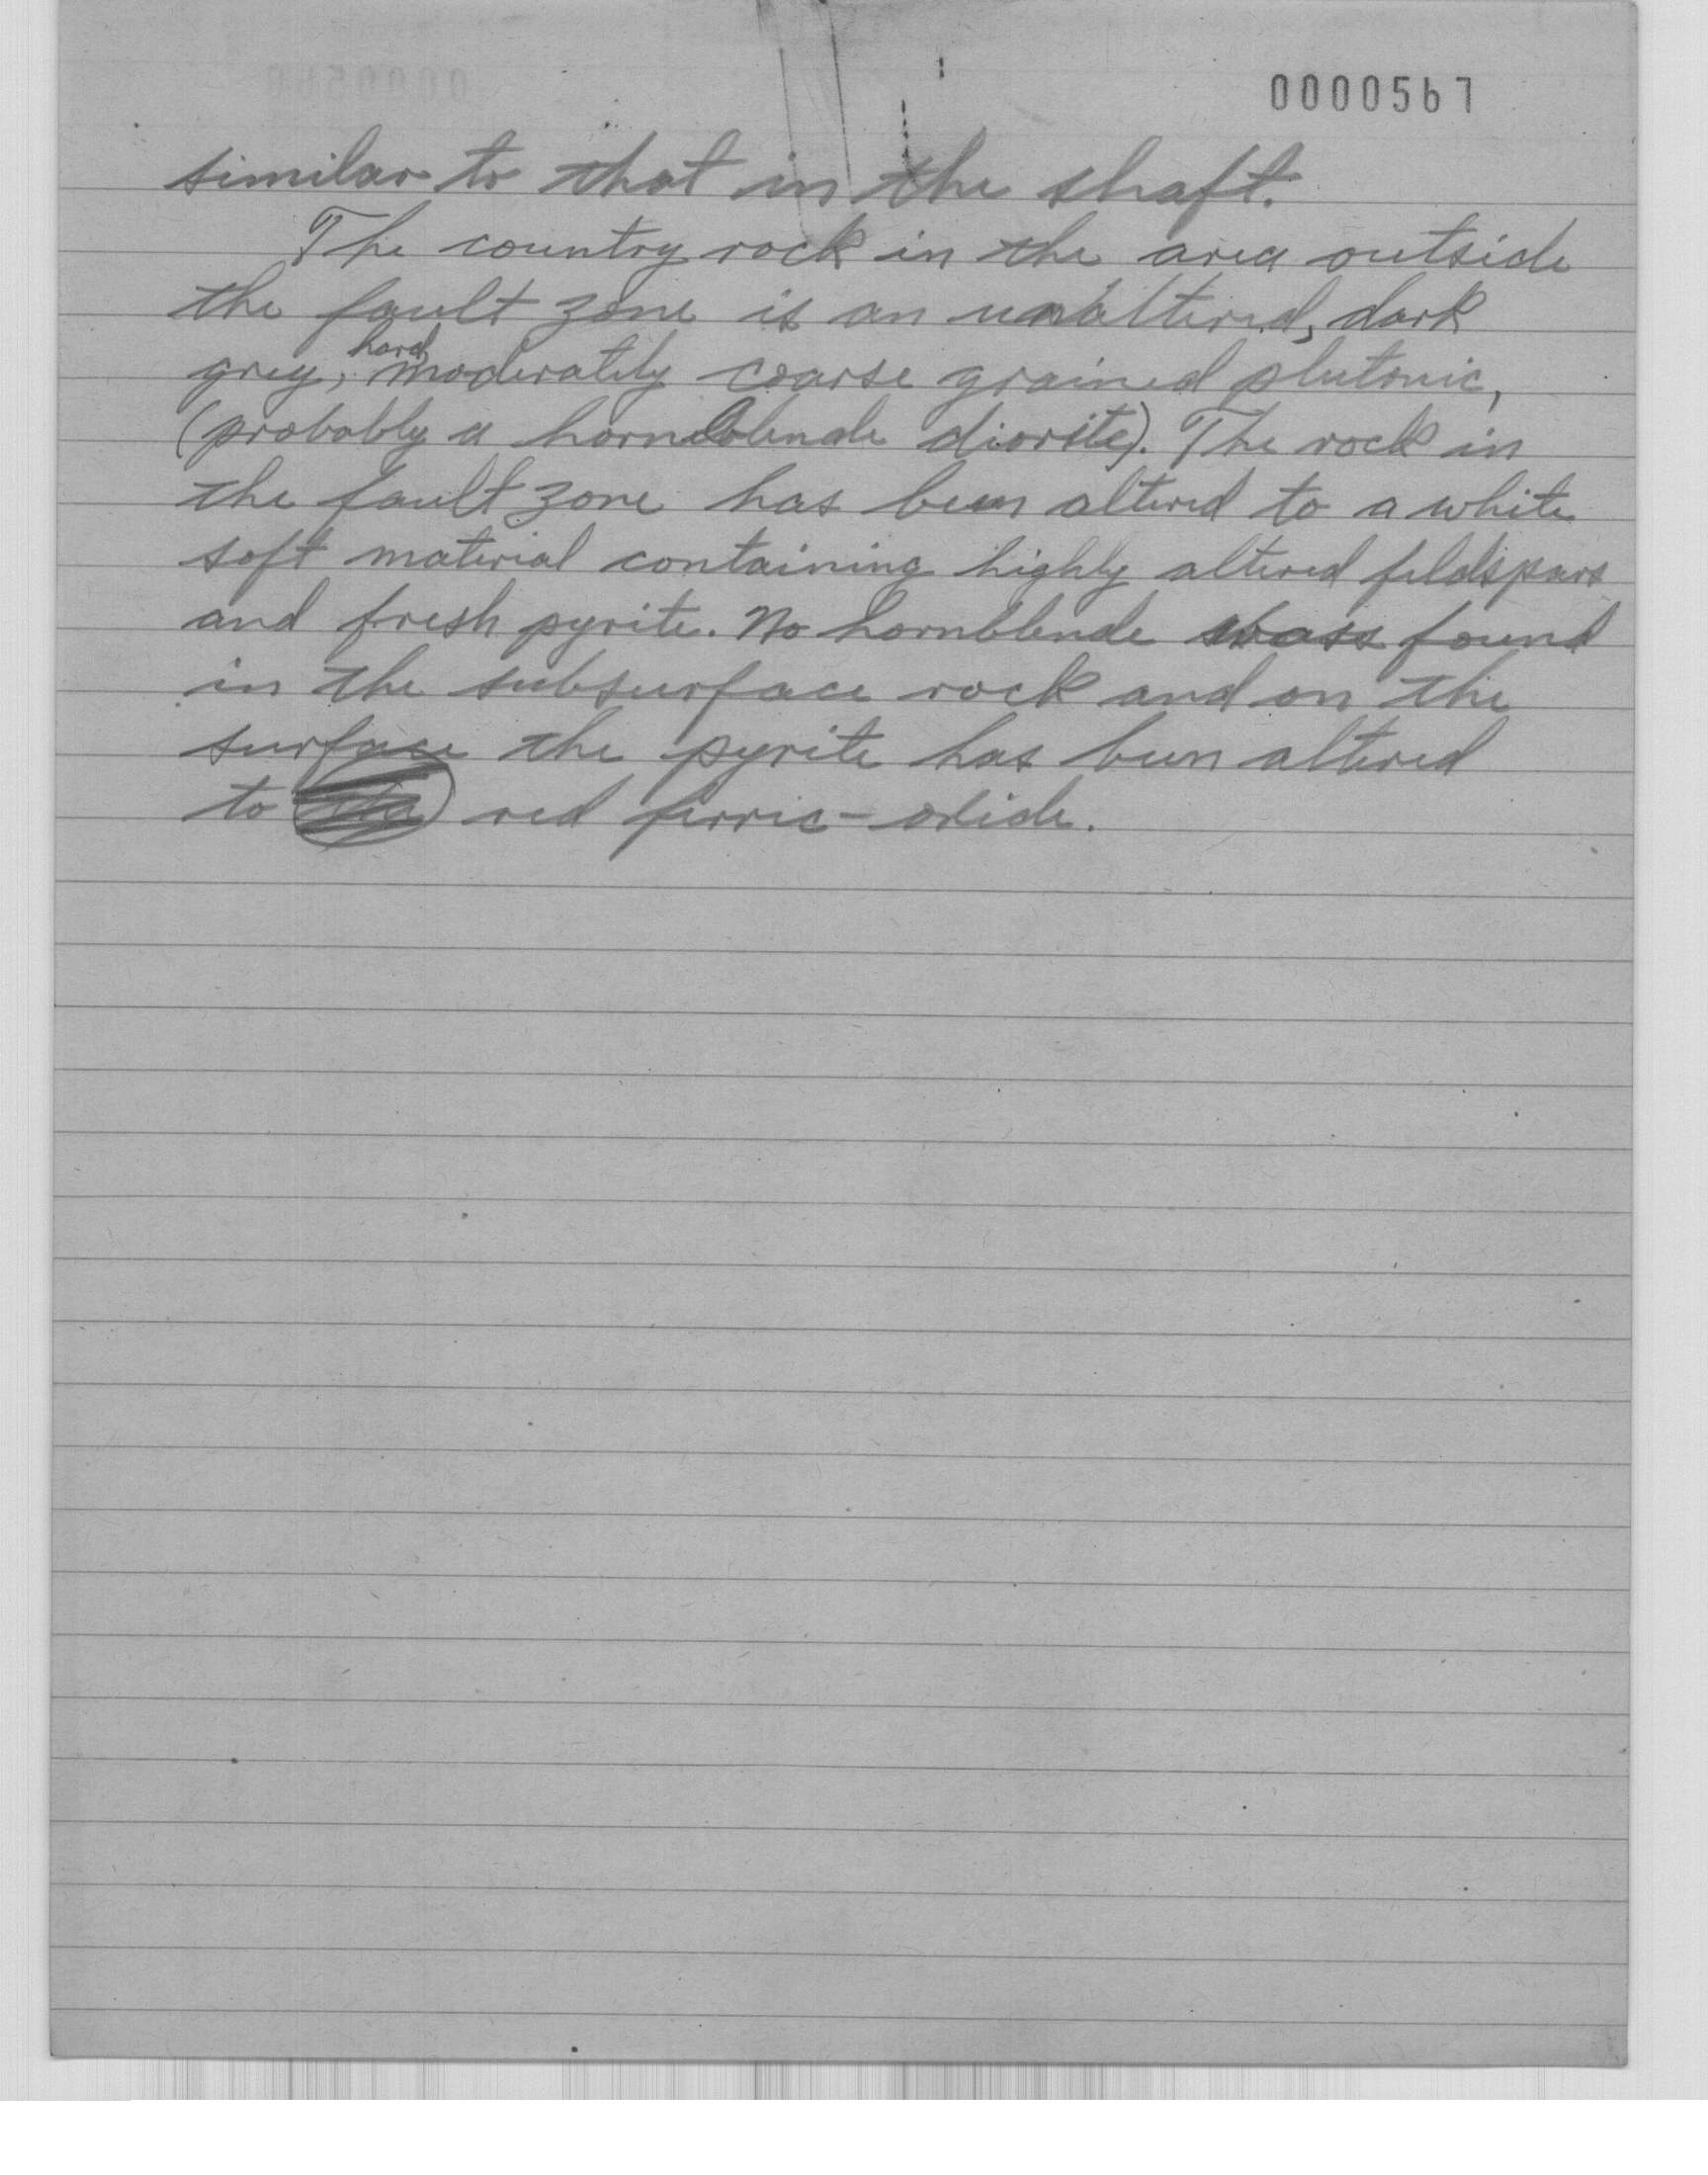 0000567
similar to that in the shaft.
The country rock in the area outside
the fault zone is an unaltered, dark
grey, hard, moderately coarse grained plutonic,
(probably a hornblende diorite). The rock in
the fault zone has been altered to a white
soft material containing highly altered feldspars
and fresh pyrite. No hornblende was found
in the subsurface rock and on the
surface the pyrite has been altered
to red ferric-oxide.